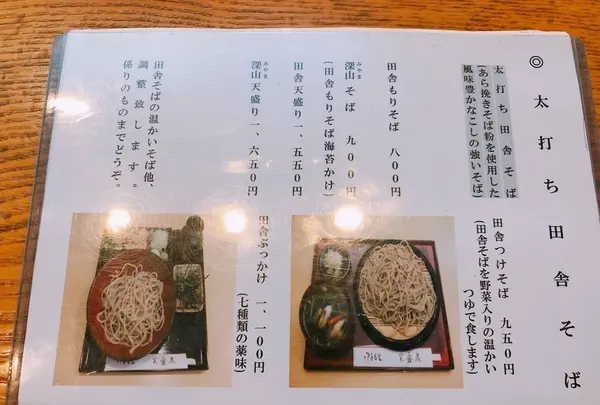 ◎太打ち田舎そば
太打ち田舎そば
(あら挽きそば粉を使用した
風味豊かなこしの強いそば)
田舎もりそば 八〇〇円
深山そば 九〇〇円
みやま
(田舎もりそば海苔かけ)
田舎天盛り 一、五五〇円
深山天盛り 一、六五〇円
みやま
田舎そばの温かいそば他、
調整致します。
係りのものまでどうぞ。
田舎つけそば 九五〇円
(田舎そばを野菜入りの温かい
つゆで食します)
田舎ぶっかけ 一、一〇〇円
(七種類の薬味)